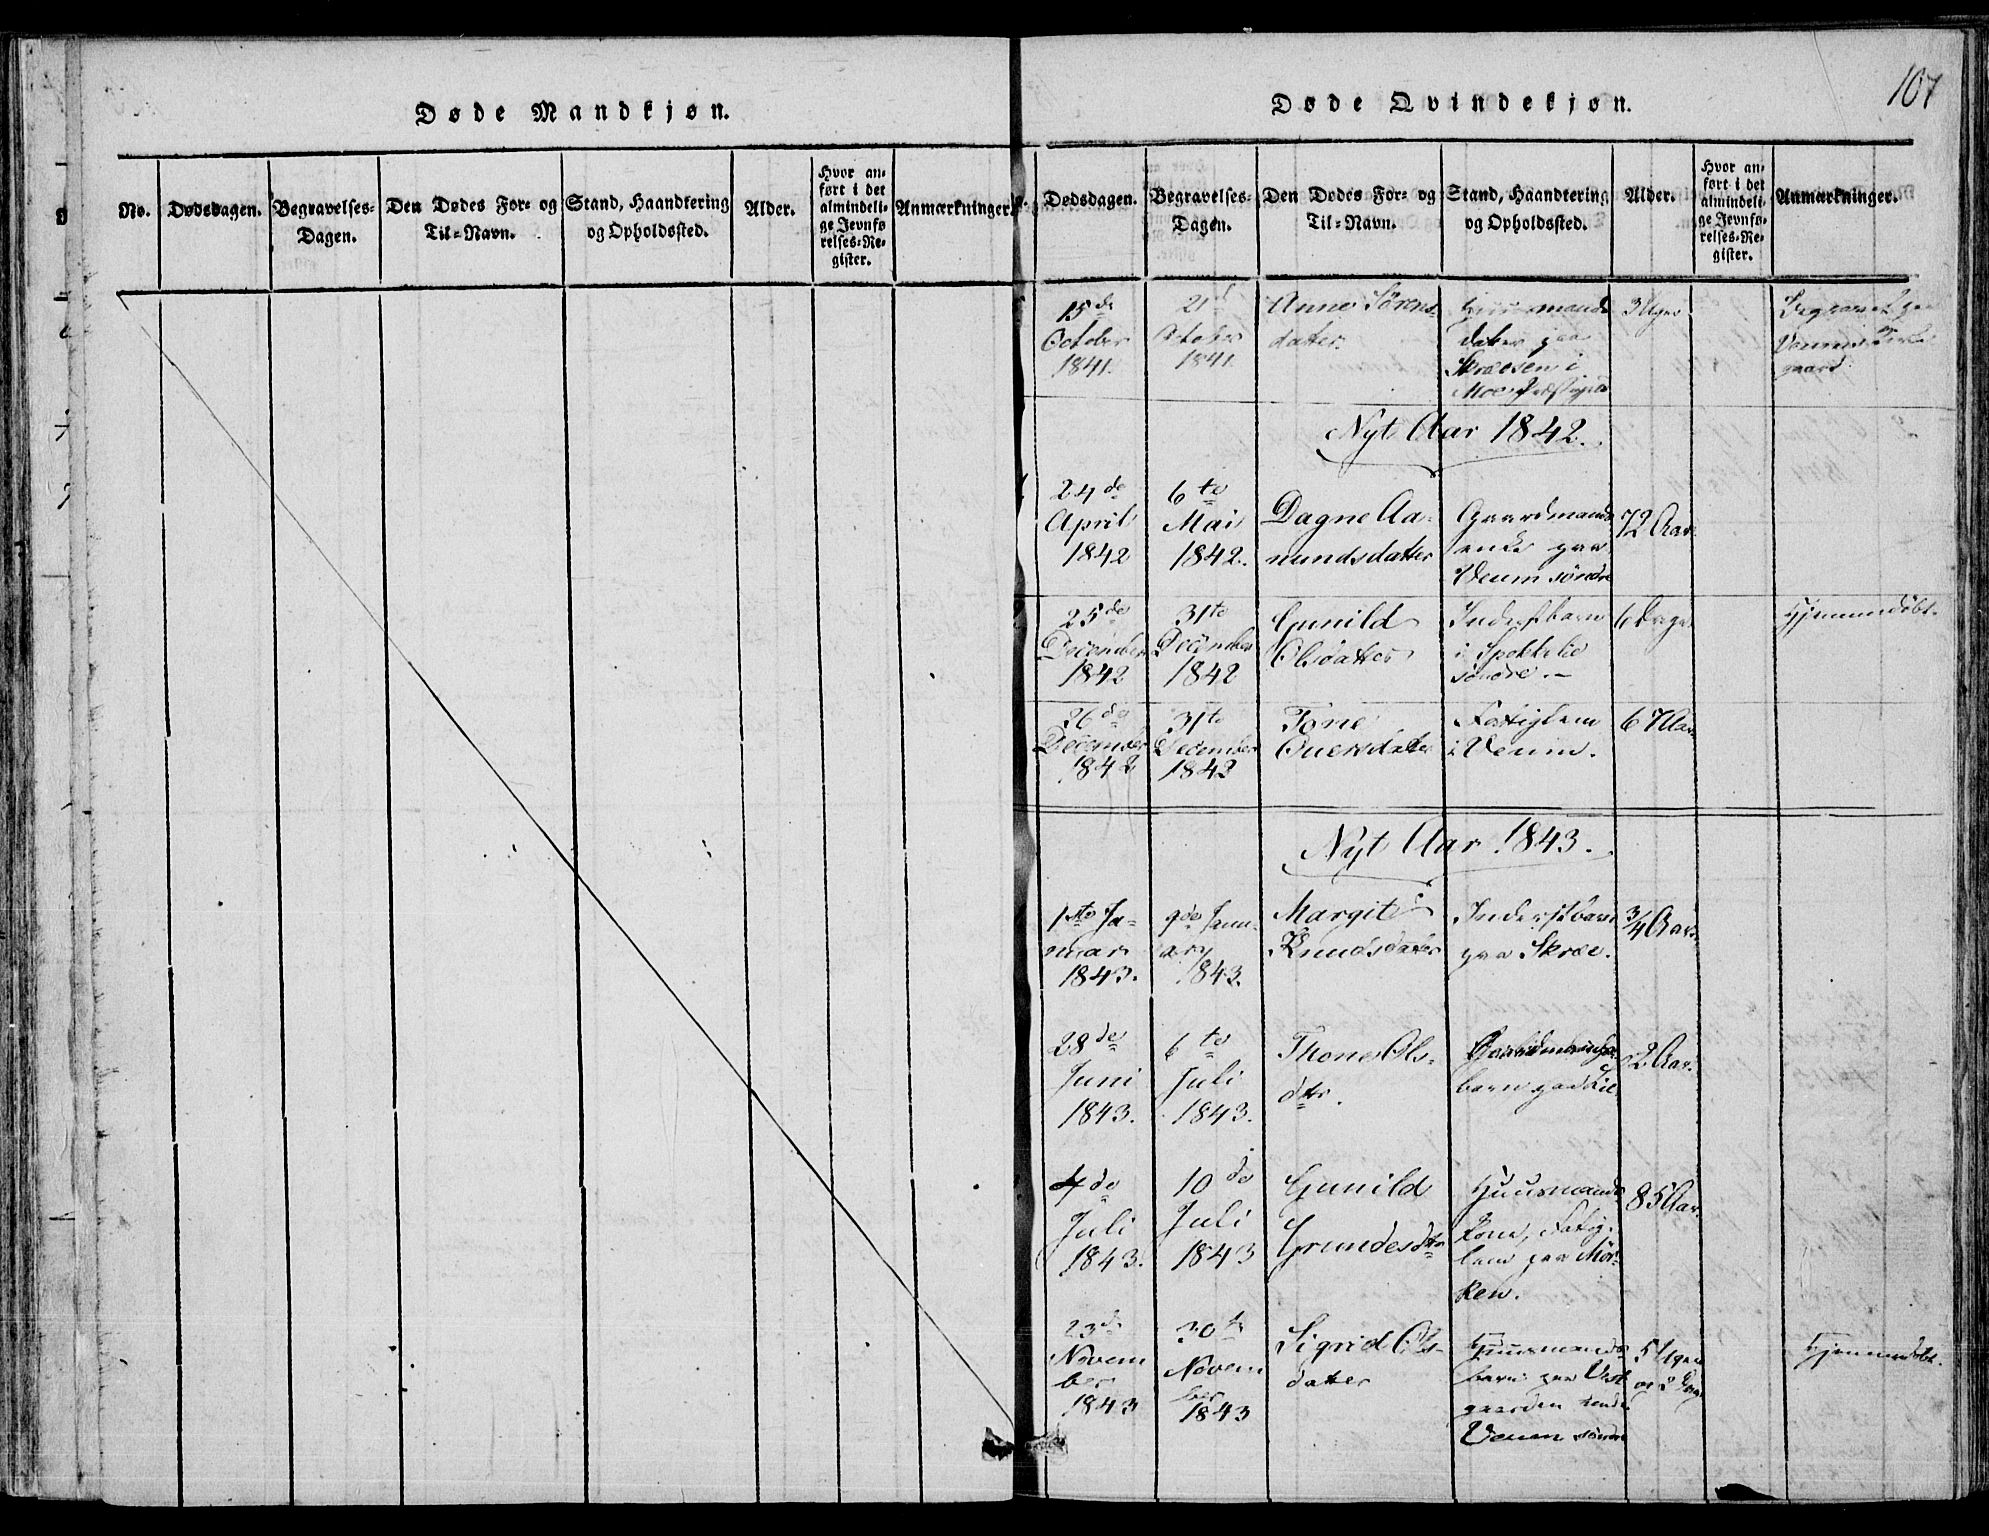 Døde Mandkjøn.
No.
Dødsdagen.
Begravelses-
Dagen.
Den Dødes For- og
Til-Navn.
Stand, Haandtering
og Opholdssted.
Alder.
Hvor an-
ført i det
almindeli-
ge Jevnfø-
relses-Re-
gister.
Anmærkninger.
107
Døde Qvindekjøn.
Dødsdagen.
Begravelses-
Dagen.
Den Dødes For- og
Til-Navn.
Stand, Haandtering
og Opholdssted.
Alder.
Hvor an-
ført i det
almindeli-
ge Jevnfø-
relses-Re-
gister.
Anmærkninger.
15de
October
1841.
21d
October
1841.
Anne Sørens-
datter.
Huusmands
datter paa
Skreosen i
3 Uger
Begravet paa
gaard.
Nyt Aar 1842.
24de
April
1842
6te
Mai
1842.
Dagne Aa-
nundsdatter
Gaardmands
enke paa
Veum søndre
72 Aar.
25de
December
1842
31te
December
1842
Gunild
Olsdatter
Inderstbarn
i Spokkelie
søndre.-
6 Dage.
Hjemmedøbt.
26de
December
1842
31te
December
1842
Tone
Ouersdatter
Fattiglem
i Veum.
67 Aar.
Nyt Aar 1843.
1ste Ja-
nuar
1843.
9de Janu-
ary
1843.
Margit
Knudsdatter
Inderstbarn
paa Skree.
3/4 Aar.
28de
Juni
1843.
6te
Juli
1843.
Thone Ols-
dtr.
Gaardmands
barn paa Lie
2 Aar.
4de
Juli
1843.
10de
Juli
1843
Gunild
Grundesdtr
Huusmands
kone, Fattig-
lem paa Mør-
ken.
85 Aar.
23de
Novem
ber
1843
30te
Novem
ber
1843
Sigrid Ols-
datter
Huusmands
barn paa Vest
gaarden under
Veum søndre
5 Uger
og 2 Dage
Hjemmedøbt.